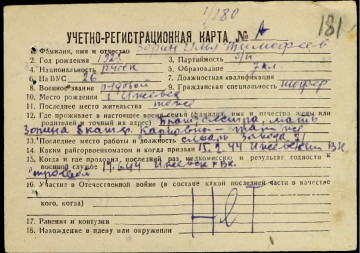 1/180
181
УЧЕТНО-РЕГИСТРАЦИОННАЯ КАРТА № А
1. Фамилия, имя и отчество Зорин Тимофеев
2. Год рождения 192 3. Партийность б/п
4. Национальность русск 5. Образование 7 кл.
6. На ВУС 26 7. Должностная квалификация
8. Военное звание рядовой 9. Гражданская специальность шофер
10. Место рождения г. Ижевск
11. Последнее местожительства тоже
12. Где проживает в настоящее время семья (фамилия, имя и отчество жены или
родителей и точный их адрес) мать
Зорина Карповна
13. Последнее место работы и должность
14. Каким райвоенкоматом и когда призван 15.2.44 Ижевским ВК
15. Когда и где проходил последний раз медкомиссию и результат годности к
военной службе 17.6.44 Ижевск ГВК
16. Участие в Отечественной войне (в составе какой последней части и в качестве
кого, когда) Нет
17. Ранения и контузии
18. Нахождение в плену или окружении